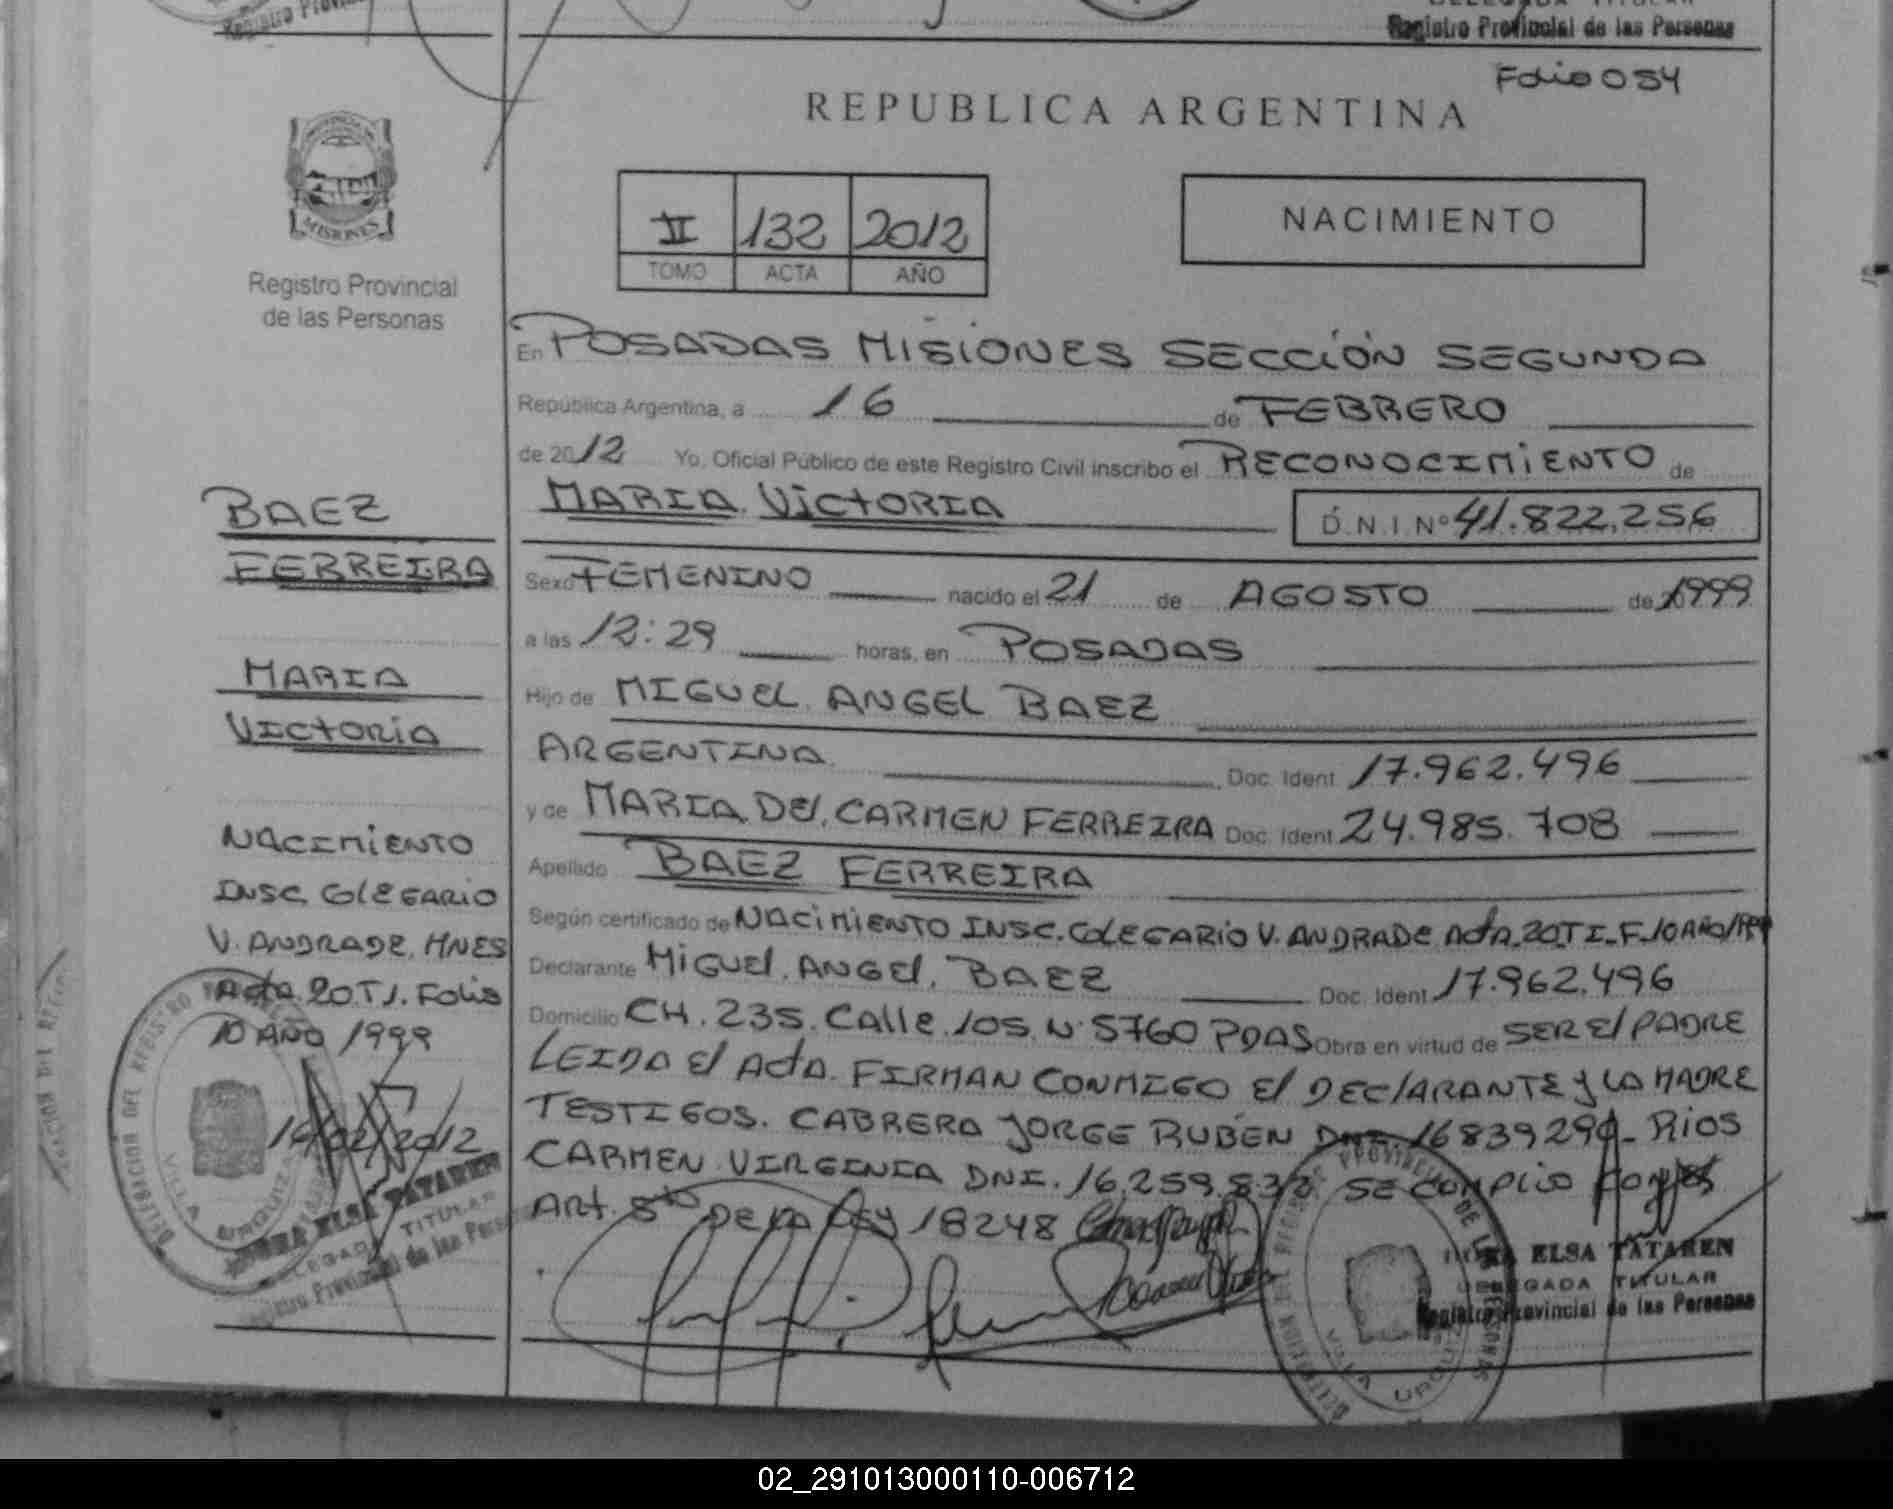 DELEGADA TITULAR
Registro Provincial de las Personas
Folio 054
REPUBLICA ARGENTINA
MISIONES
Registro Provincial
de las Personas
II 132 2012
TOMO ACTA AÑO
NACIMIENTO
En POSADAS MISIONES SECCIÓN SEGUNDA
República Argentina, a 16 de FEBRERO
de 2012 Yo, Oficial Público de este Registro Civil inscribo el RECONOCIMIENTO de
MARIA VICTORIA D.N.I.Nº 41.822.256
Sexo FEMENINO nacido el 21 de AGOSTO de 1999
a las 12:29 horas, en POSADAS
Hijo de MIGUEL ANGEL BAEZ
ARGENTINA Doc. Ident 17.962.496
y de MARIA DEL CARMEN FERREIRA Doc. Ident 24.985.708
Apellido BAEZ FERREIRA
Según certificado de NACIMIENTO INSC. OLEGARIO V. ANDRADE Acta 20 T I F 10 AÑO 1999
Declarante MIGUEL ANGEL BAEZ Doc. Ident 17.962.496
Domicilio CH. 235. Calle 105. N 5760 PDAS Obra en virtud de SER El PADRE
LEIDA El ActA FIRMAN CONMIGO El DEClARANTE y LA MADRE
TESTIGOS. CABRERA JORGE RUBEN DNI. 16839290_ RIOS
CARMEN VIRGINIA DNI. 16.259.832 SE CUMPLIO
Art. 5to DE LA LEY 18248
BAEZ
FERREIRA
MARIA
VICTORIA
NACIMIENTO
INSC. OLEGARIO
V. ANDRADE, MNES
Acta 20 T1. Folio
10 AÑO 1999
16/02/2012
DELEGACION DEL REGISTRO
VILLA URQUIZA
ELSA TATAREN
DELEGADA TITULAR
Registro Provincial de las Personas
ELSA TATAREN
DELEGADA TITULAR
Registro Provincial de las Personas
VILLA URQUIZA
02_291013000110-006712